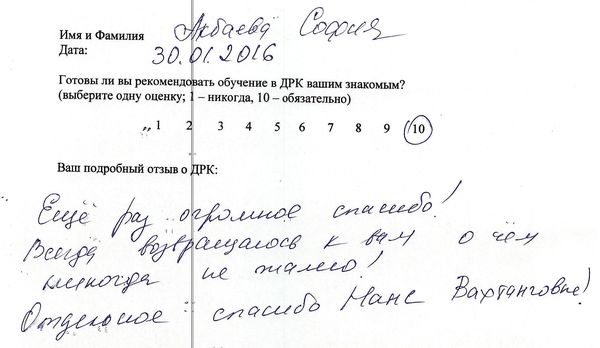 Имя и Фамилия Акбаева София
Дата: 30.01.2016
Готовы ли вы рекомендовать обучение в ДРК вашим знакомым?
(выберите одну оценку; 1 – никогда, 10 – обязательно)
1 2 3 4 5 6 7 8 9 10
Ваш подробный отзыв о ДРК:
Ещё раз огромное спасибо!
Всегда возвращаюсь к вам о чём
никогда не жалею!
Отдельное спасибо Нане Вахтанговне!